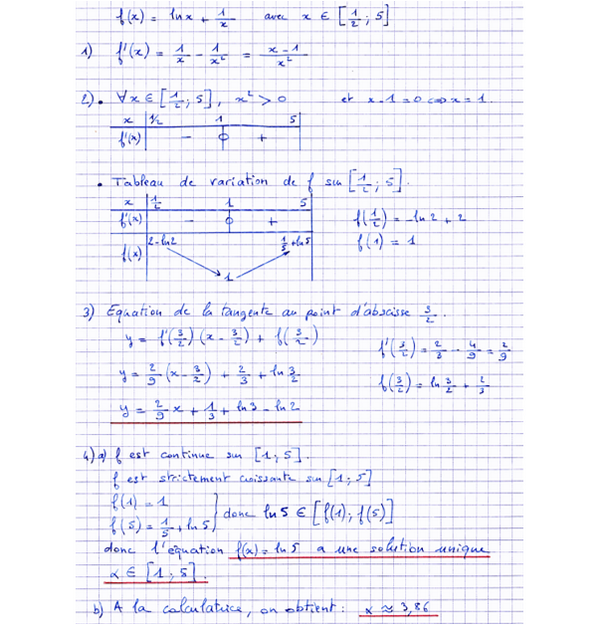 f(x) = ln x + 1/x avec x ∈ [1/2 ; 5]
1) f'(x) = 1/x - 1/x² = (x - 1)/x²
2) • ∀x ∈ [1/2 ; 5], x² > 0 et x - 1 = 0 ⟺ x = 1.
x | 1/2 1 5
f'(x) | - 0 +
• Tableau de variation de f sur [1/2 ; 5].
x | 1/2 1 5
f'(x) | - 0 + f(1/2) = -ln 2 + 2
f(x) | 2 - ln 2 ↘ 1 ↗ 1/5 + ln 5 f(1) = 1
3) Equation de la tangente au point d'abscisse 3/2.
y = f'(3/2) (x - 3/2) + f(3/2) f'(3/2) = 2/3 - 4/9 = 2/9
y = 2/9 (x - 3/2) + 2/3 + ln 3/2 f(3/2) = ln 3/2 + 2/3
y = 2/9 x + 1/3 + ln 3 - ln 2
4) a) f est continue sur [1 ; 5].
f est strictement croissante sur [1 ; 5]
f(1) = 1
f(5) = 1/5 + ln 5 } donc ln 5 ∈ [f(1) ; f(5)]
donc l'équation f(x) = ln 5 a une solution unique
α ∈ [1 ; 5].
b) A la calculatrice, on obtient : α ≈ 3,86